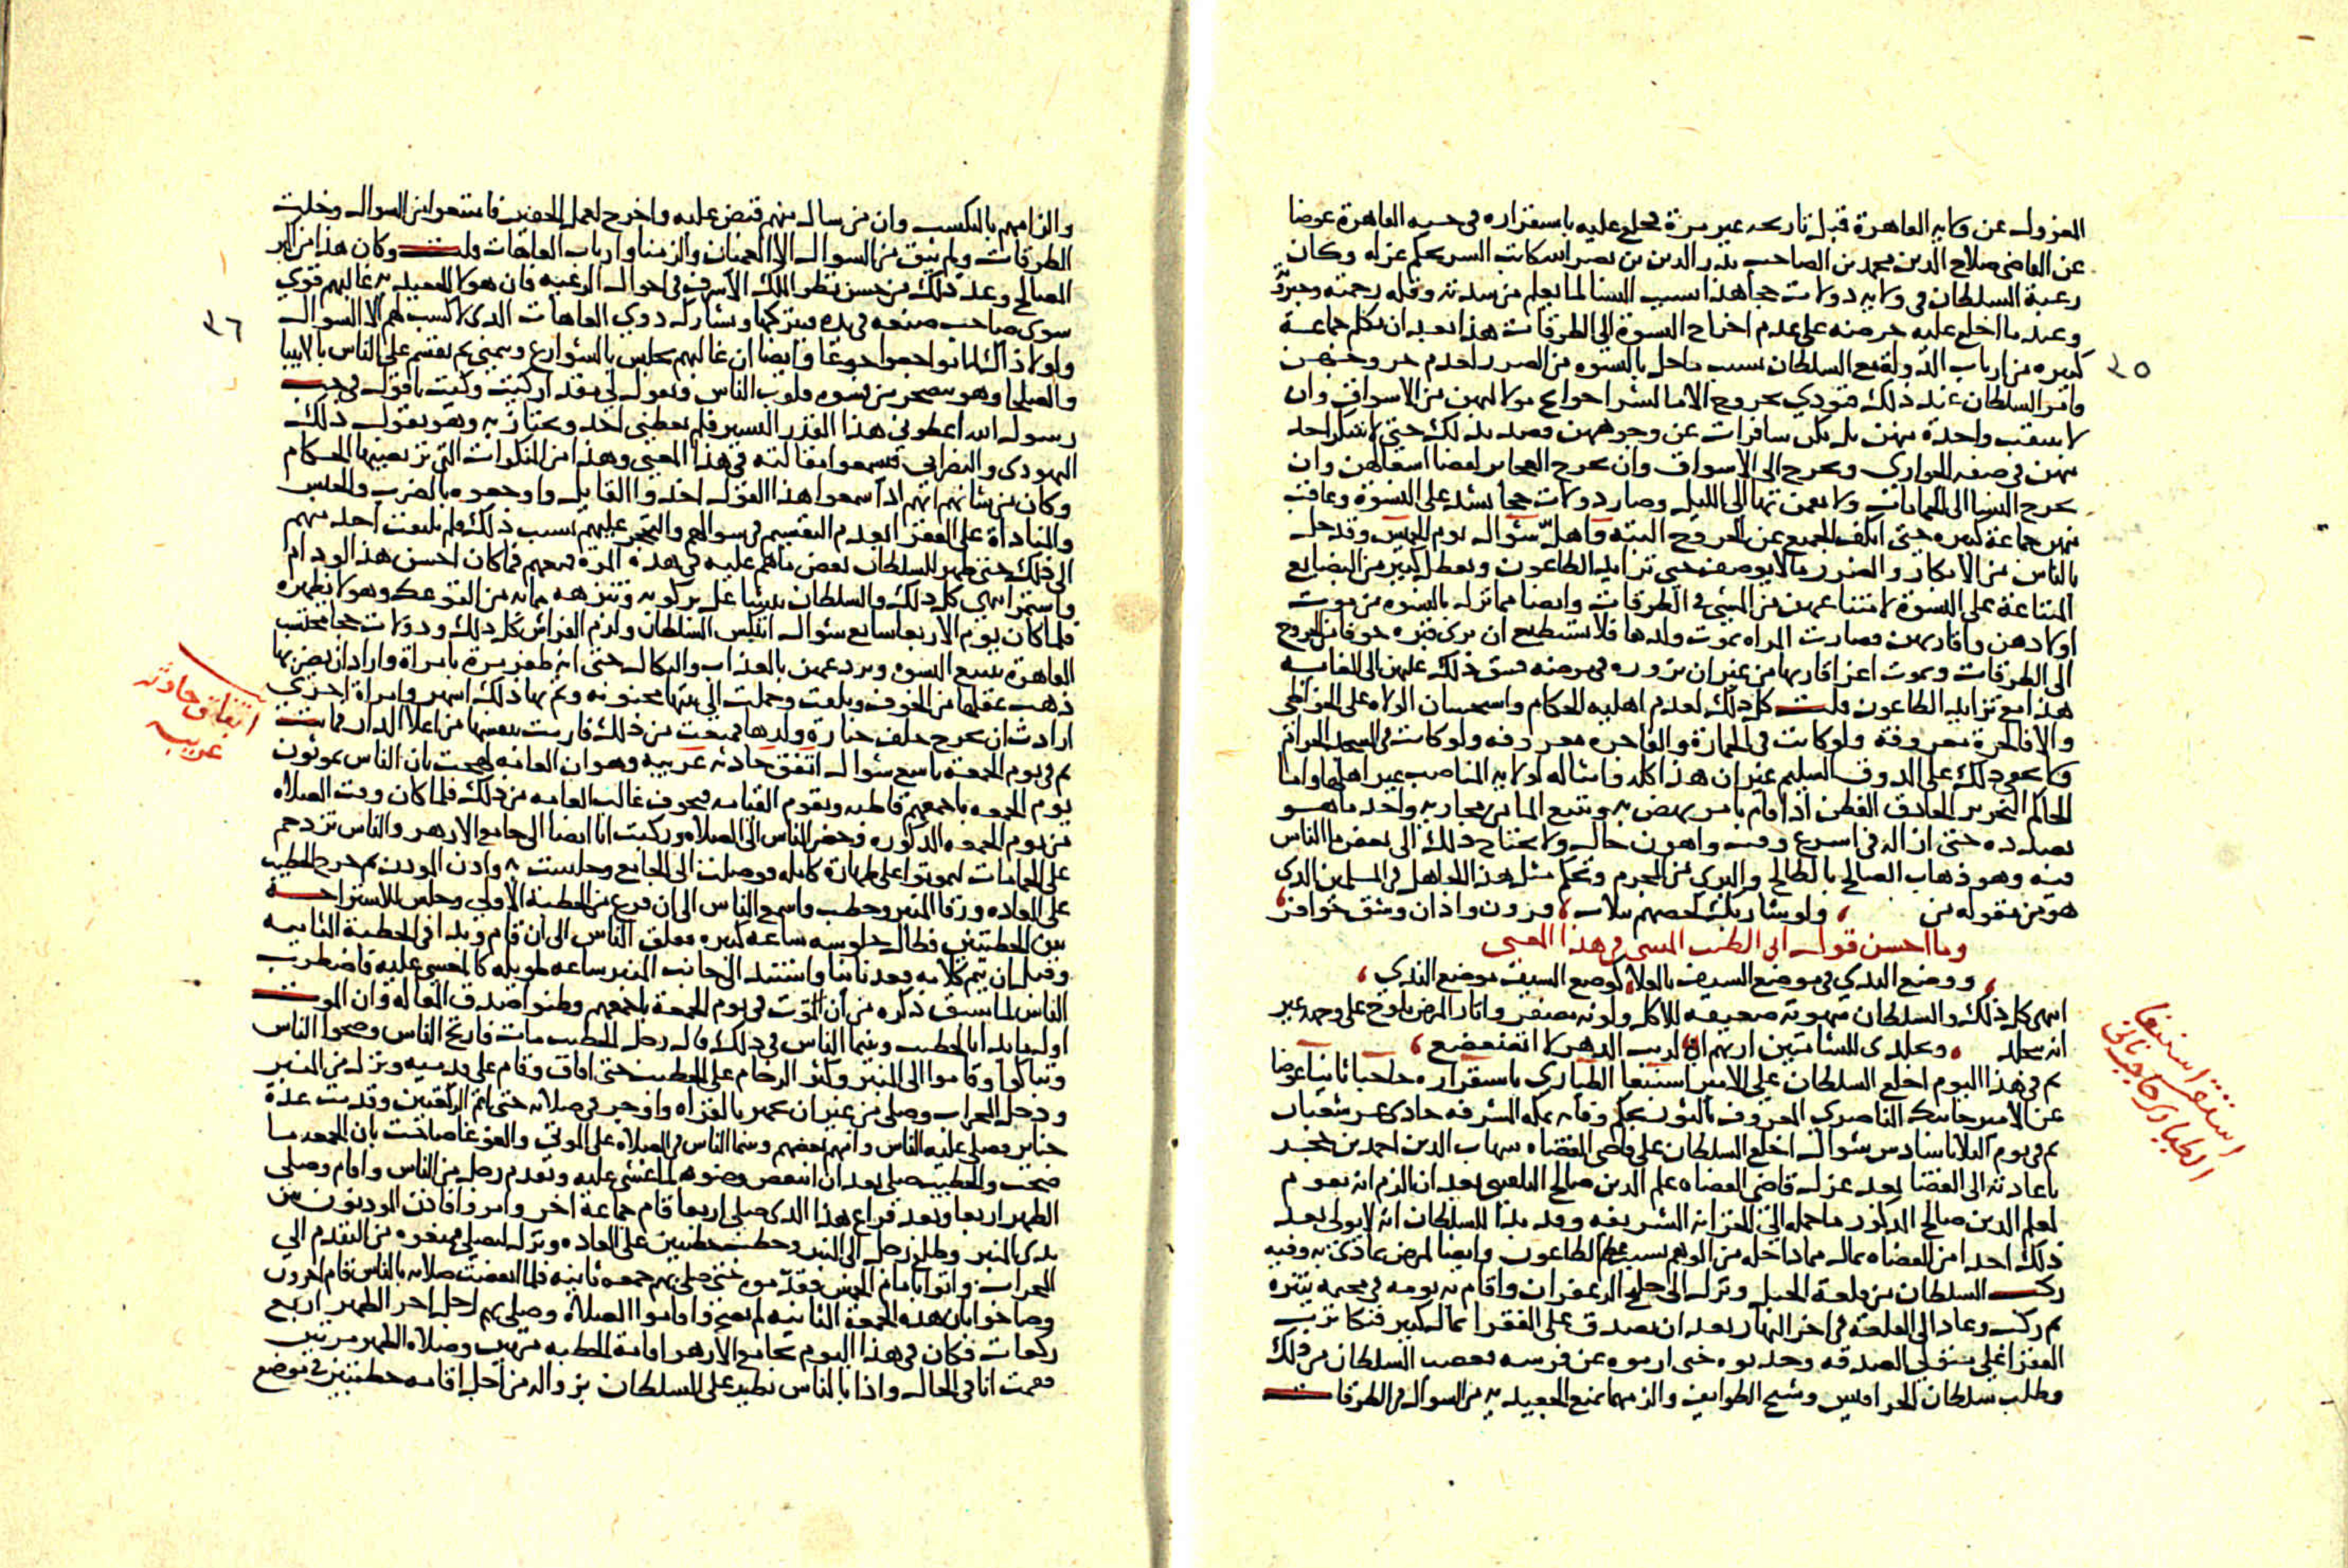 المعزول عن ولايه القاهرة قبل تاريخه غير مرة خلع عليه باستقراره فى حسبه القاهرة عوضا
عن القاضى صلاح الدين محمد بن الصاحب بدر الدين بن نصر الله كاتب السر بحكم عزله وكان
رغبة السلطان فى ولايه دولات خجا هذا بسبب النسا لما يعلم من شدته وقله رحمته وجبروته
وعند ما اخلع عليه حرضه على عدم اخراج النسوة الى الطرقات هذا بعد ان تكلم جماعة
كبيره من ارباب الدولة مع السلطان بسبب ما حل بالنسوه من الضرر لعدم خروجهن
٣٥
فامر السلطان عند ذلك فنودي بخروج الاما لشرا حوايج مواليهن من الاسواق وان
لا تنتقب واحدة منهن بل يكن سافرات عن وجوههن قصد بذلك حتى لا تتنكر احد
منهن فى صفه الجوارى وتخرج الى الاسواق وان تخرج العجايز لقضا اشغالهن وان
تخرج النسا الى الحمامات ولا يقمن بها الى الليل وصار دولات خجا يشد على النسوة وعاقب
منهن جماعة كبيره حتى انكف الجميع عن الخروج البته واهل شوال يوم الخميس وقد حل
بالناس من الانكار والضرر ما لا يوصف حتى تزايد الطاعون وتعطل كثير من البضايع
المتباعة على النسوة لامتناعهن من المشى فى الطرقات وايضا مما نزل بالنسوه من موت
اولادهن واقاربهن فصارت المراه يموت ولدها فلا تستطيع ان ترى قبره خوفا من الخروج
الى الطرقات ويموت اعز اقاربها من غير ان تزوره فى مرضه فشق ذلك عليهن الى الغايه
هذا مع تزايد الطاعون قلت كل ذلك لعدم اهليه الحكام واستحسان الولاه على الخواطي
والا فالحرة معروفة ولو كانت فى الخمارة والفاجره معروفه ولو كانت فى المسجد الحرام
ولا يخفى ذلك على الذوق السليم غير ان هذا كله وامثاله لولايه المناصب غير اهلها واما
الحاكم النحرير الحاذق الفطن اذا قام بامر نهض به وتتبع الما من مجاريه واخذ ما هو
بصدده حتى ازاله فى اسرع وقت واهون حال ولا يحتاج ذلك الى بعض ما الناس
فيه وهو ذهاب الصالح بالطالح والبري من المجرم وتحكم مثل هذا الجاهل فى المسلمين الذى
هو من مقوله من ، ولو شا ربك لخصهم بثلاث ، قرون واذان وشق حوافر ،
وما احسن قول ابى الطيب المتنبى فى هذا المعنى
، ووضع الندي فى موضع السيف بالعلا ، كوضع السيف موضع الندي ،
انتهى كل ذلك والسلطان شهوته ضعيفه للاكل ولونه مصفر واثار المرض تلوح على وجهه غير
انه يتجلد ، وتجلدى للشامتين اريهم ، انى لريب الدهر لا اتضعضع ،
ثم فى هذا اليوم اخلع السلطان على الامير اسنبغا الطيارى باستقراره حاجبا ثانيا عوضا
استقرار اسنبغا
الطيارى حاجب ثانى
عن الامير جانبك الناصري المعروف بالثور بحكم وفاته بمكه المشرفه حادى عشر شعبان
ثم فى يوم الثلاثا سادس شوال اخلع السلطان على قاضى القضاه شهاب الدين احمد بن حجر
باعادته الى القضا بعد عزل قاضى القضاه علم الدين صالح البلقينى بعد ان الزم انه يقوم
لعلم الدين صالح المذكور ما حمله الى الخزانه الشريفه وقد بدا للسلطان انه لا يولى بعد
ذلك احدا من القضاه بمال مما داخله من الوهم بسبب عظم الطاعون وايضا لمرض تمادى به وفيه
ركب السلطان من قلعة الجبل ونزل الى خليج الزعفران واقام به يومه فى مخيمه يتنزه
ثم ركب وعاد الى القلعة فى اخر النهار بعد ان تصدق على الفقرا بمال كبير فتكاثرت
الفقرا على متولى الصدقه وجذبوه حتى ارموه عن فرسه فغضب السلطان من ذلك
وطلب سلطان الحرافيش وشيخ الطوايف والزمهما بمنع الجعيديه من السوال فى الطرقات
والزامهم بالتكسب وان من سال منهم قبض عليه واخرج لعمل الحفير فامتنعوا من السوال وخلت
الطرقات ولم يبق من السوال الا العميان والزمنا وارباب العاهات قلت وكان هذا من اكبر
المصالح وعد ذلك من حسن نظر الملك الاشرف فى احوال الرعيه فان هولا الجعيديه غالبهم قوي
سوى صاحب صنعه فى يده فيتركها ويشارك ذوي العاهات الذى لا كسب لهم الا السوال
٣٦
ولولا ذاك لماتوا جوعا وايضا ان غالبهم يجلس بالشوارع ويمنى ثم يقسم على الناس بالانبيا
والصلحا وهو يتضجر من قسوه قلوب الناس ويقول لى مقدار كيت وكيت باقول فى حب
رسول الله اعطونى هذا القدر اليسير فلم يعطنى احد ويجتاز به وهو يقول ذلك
اليهودى والنصرانى فيسمعوا مقالته فى هذا المعنى وهذا من المنكرات التى ترتضيها الحكام
وكان من شانهم انهم اذا سمعوا هذا القول اخذوا القايل واوجعوه بالضرب والحبس
والمناداة على الفقرا بعدم التقسيم فى سوالهم والتحجر عليهم بسبب ذلك فلم يلتفت احد منهم
الى ذلك حتى ظهر للسلطان بعض ما هم عليه فى هذه المره فمنعهم فما كان احسن هذا لو دام
واستمر انتهى كل ذلك والسلطان يتشاغل بركوبه وتنزهه مما به من التوعك وهو لا يظهره
فلما كان يوم الاربعا سابع شوال انتكس السلطان ولزم الفراش كل ذلك ودولات خجا محتسب
القاهرة يتتبع النسوه ويردعهن بالعذاب والنكال حتى انه ظفر مرة بامراة واراد ان يضربها
ذهب عقلها من الخوف وتلفت وحملت الى بيتها مجنونه وتم بها ذلك اشهر وامراة اخرى
ارادت ان تخرج خلف جنازة ولدها فمنعت من ذلك فارمت بنفسها من اعلا الدار فماتت
ثم فى يوم الجمعة تاسع شوال اتفق حادثه غريبه وهو ان العامه لهجت بان الناس يموتون
اتفاق حادثه
غريبه
يوم الجمعه باجمعهم قاطبه وتقوم القيامه فتخوف غالب العامه من ذلك فلما كان وقت الصلاه
من يوم الجمعه المذكوره وحضر الناس الى الصلاه وركبت انا ايضا الى جامع الازهر والناس تزدحم
على الحمامات ليموتوا على طهارة كامله فوصلت الى الجامع وجلست به واذن الموذن ثم خرج الخطيب
على العاده ورقا المنبر وخطب واسمع الناس الى ان فرغ من الخطبة الاولى وجلس للاستراحة
بين الخطبتين فطال جلوسه ساعه كبيره فقلق الناس الى ان قام وبدا فى الخطبة الثانيه
وقبل ان يتم كلامه قعد ثانيا واستند الى جانب المنبر ساعه طويله كالمغشى عليه فاضطرب
الناس لما سبق ذكره من ان الموت فى يوم الجمعة باجمعهم وظنوا صدق المقاله وان الموت
اول ما بدا بالخطيب وبينما الناس فى ذلك قال رجل الخطيب مات فارتج الناس وضجوا الناس
وتباكوا وقاموا الى المنبر وكثر الزحام على الخطيب حتى افاق وقام على قدميه ونزل من المنبر
ودخل المحراب وصلى من غير ان يجهر بالقراه واوجز فى صلاته حتى اتم الركعتين وقدمت عدة
جنايز فصلى عليها الناس وامهم بعضهم وبينما الناس فى الصلاه على الموتى والغوغا صاحت بان الجمعه ما
صحت والخطيب صلى بعد ان انتقض وضوه لما غشى عليه وتقدم رجل من الناس واقام وصلى
الظهر اربعا وبعد فراغ هذا الذى صلى اربعا قام جماعة اخر وامروا فاذن الموذنون بين
يدى المنبر وطلع رجل الى المنبر وخطب خطبتين على العاده ونزل ليصلى فمنعوه من التقدم الى
المحراب واتوا بامام الخمس فقدموه حتى صلى بهم جمعه ثانيه فلما انقضت صلاته بالناس قام اخرون
وصاحوا بان هذه الجمعة الثانيه لم تصح واقاموا الصلاة وصلى بهم رجل اخر الظهر اربع
ركعات فكان فى هذا اليوم بجامع الازهر اقامة الخطبه مرتين وصلاه الظهر مرتين
فقمت انا فى الحال واذا بالناس تطير على السلطان بزواله من اجل اقامه خطبتين فى موضع